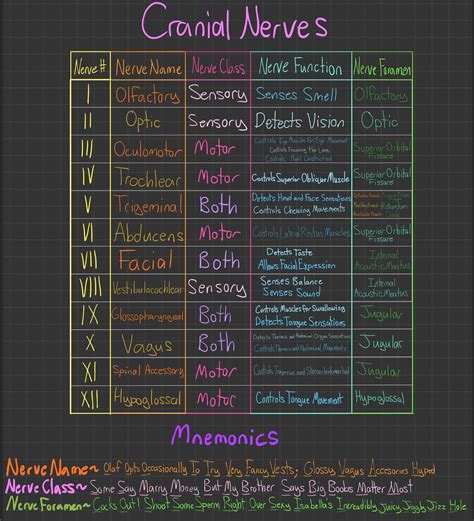 Cranial Nerves
Nerve # Nerve Name Nerve Class Nerve Function Nerve Foramen
I Olfactory Sensory Senses Smell Olfactory
II Optic Sensory Detects Vision Optic
III Oculomotor Motor Controls Eye Muscles For Eye Movement Superior Orbital
Controls Focusing The Lens Fissure
Controls Pupil Constriction
IV Trochlear Motor Controls Superior Oblique Muscle Superior Orbital
Fissure
V Trigeminal Both Detects Head and Face Sensations
Controls Chewing Movements Rotundum
VI Abducens Motor Controls Lateral Rectus Muscles Superior Orbital
Fissure
VII Facial Both Detects Taste Internal
Allows Facial Expression Acoustic Meatus
VIII Vestibulocochlear Sensory Senses Balance Internal
Senses Sound Acoustic Meatus
IX Glossopharyngeal Both Controls Muscles for Swallowing Jugular
Detects Tongue Sensations
X Vagus Both Detects Thoracic and Abdominal Organ Sensations Jugular
Controls Thoracic and Abdominal Movements
XI Spinal Accessory Motor Controls Trapezius and Sternocleidomastoid Jugular
XII Hypoglossal Motor Controls Tongue Movement Hypoglossal
Mnemonics
Nerve Name~ Olaf Opts Occasionally To Try Very Fancy Vests, Glossy Vagus Accesories Hyped
Nerve Class~ Some Say Marry Money But My Brother Says Big Books Matter Most
Nerve Foramen~ Cocks Out! Shoot Some Sperm Right Over Sexy Isabella's Incredibly Juicy Jiggly Jizz Hole